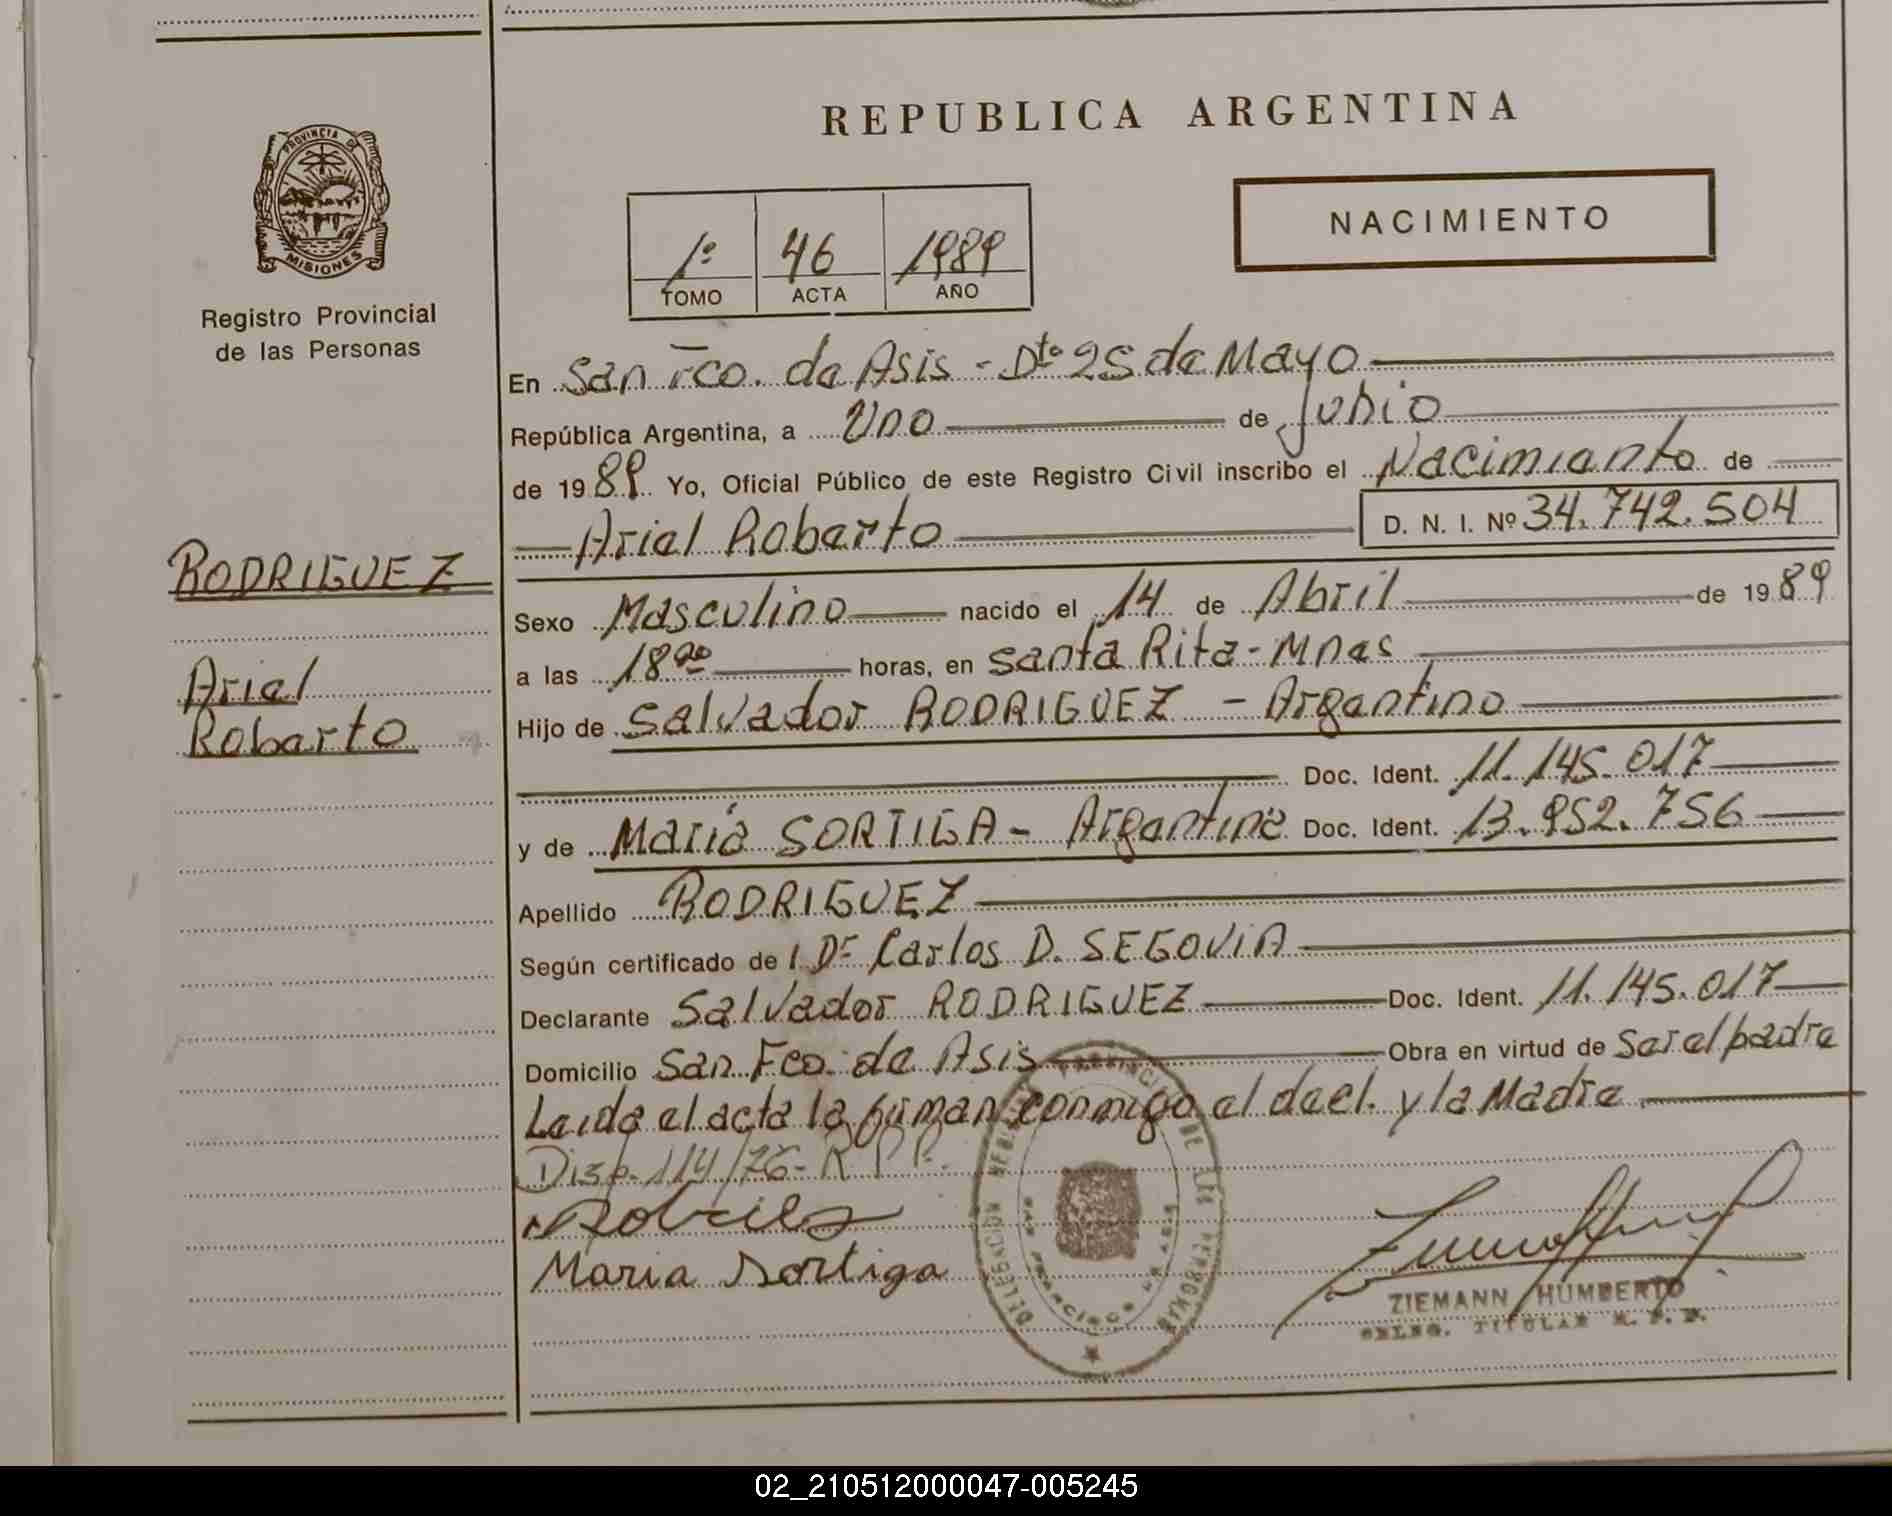 REPUBLICA ARGENTINA
PROVINCIA DE
MISIONES
Registro Provincial
de las Personas
NACIMIENTO
1º 46 1989
TOMO ACTA AÑO
En San Fco. de Asis - Dto 25 de Mayo
República Argentina, a Uno de Junio
de 1989 Yo, Oficial Público de este Registro Civil inscribo el Nacimiento de
Ariel Roberto D. N. I. Nº 34.742.504
RODRIGUEZ
Ariel
Roberto
Sexo Masculino nacido el 14 de Abril de 1989
a las 18 horas, en Santa Rita - Mnes
Hijo de Salvador RODRIGUEZ - Argentino
Doc. Ident. 11.145.017
y de María SORTIGA - Argentina Doc. Ident. 13.952.756
Apellido RODRIGUEZ
Según certificado de l Dr Carlos D. SEGOVIA
Declarante Salvador RODRIGUEZ Doc. Ident. 11.145.017
Domicilio San Fco. de Asis Obra en virtud de Ser el padre
Leida el acta la firman conmigo el decl. y la Madre
Disp. 114/76 - R P P.
Maria Sortiga
DELEGACION REGISTRO PROVINCIAL DE LAS PERSONAS
SAN FRANCISCO DE ASIS
ZIEMANN HUMBERTO
DELEG. TITULAR R. P. P.
02_210512000047-005245